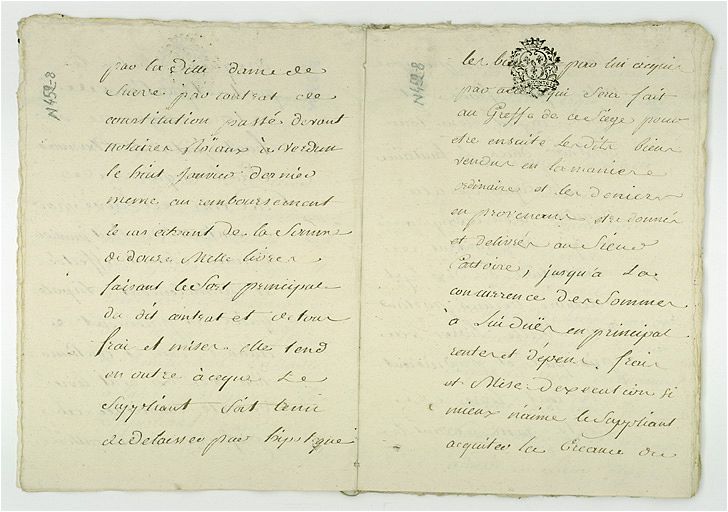 N 452-8
par la ditte dame de
Sucre par contrat de
constitution passé devant
notaires Roiaux à verdun
le huit Janvier dernier
meme au remboursement
le cas echeant de la Somme
de douze Mille livres
faisant le Sort principal
du dit contrat et de tous
frais et mises elle tend
en outre à ceque Le
Suppliant Soit tenu
de delaisser par hipoteque
N 452-8
les par lui acquis
par qui Sera fait
au Greffe de ce Siege pour
etre ensuite Lesdits biens
vendus en la maniere
ordinaire et les deniers
en provenans etre donnés
et delivrés au Sieur
jusqu'à La
concurrence des Sommes
à Lui duës en principal
rentes et dépens frais
et Mises d'execution si
mieux n'aime le Suppliant
acquiter la Creance du